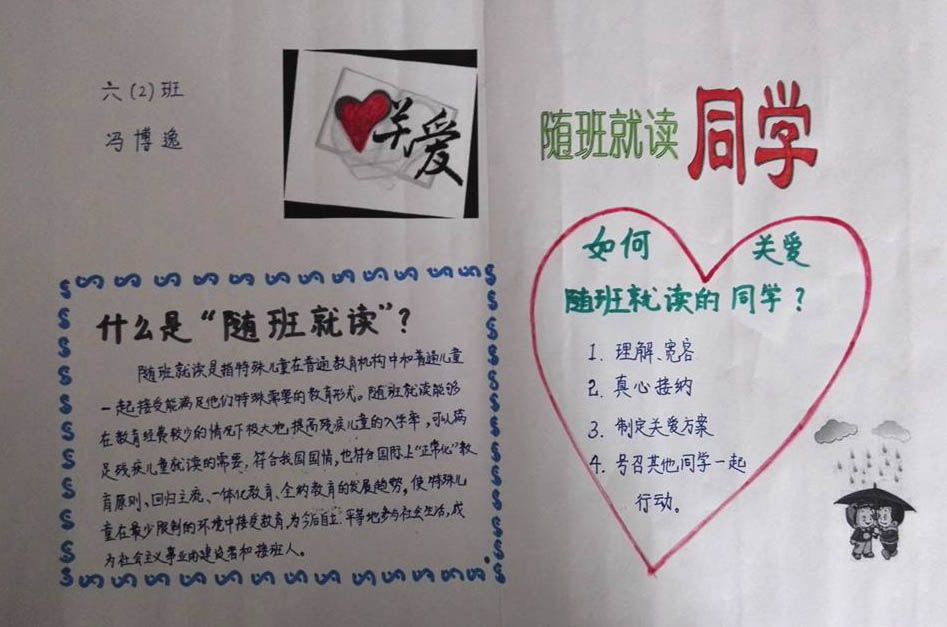 六(2)班
冯博逸
关爱
什么是“随班就读”?
随班就读是指特殊儿童在普通教育机构中和普通儿童
一起接受能满足他们特殊需要的教育形式。随班就读能够
在教育经费较少的情况下极大地提高残疾儿童的入学率,可以满
足残疾儿童就读的需要,符合我国国情,也符合国际上“正常化”教
育原则、回归主流、一体化教育、全纳教育的发展趋势,使特殊儿
童在最少限制的环境中接受教育,为今后自立、平等地参与社会生活,成
为社会主义事业的建设者和接班人。
随班就读 同学
如何 关爱
随班就读的同学?
1. 理解、宽容
2. 真心接纳
3. 制定关爱方案
4. 号召其他同学一起
行动。